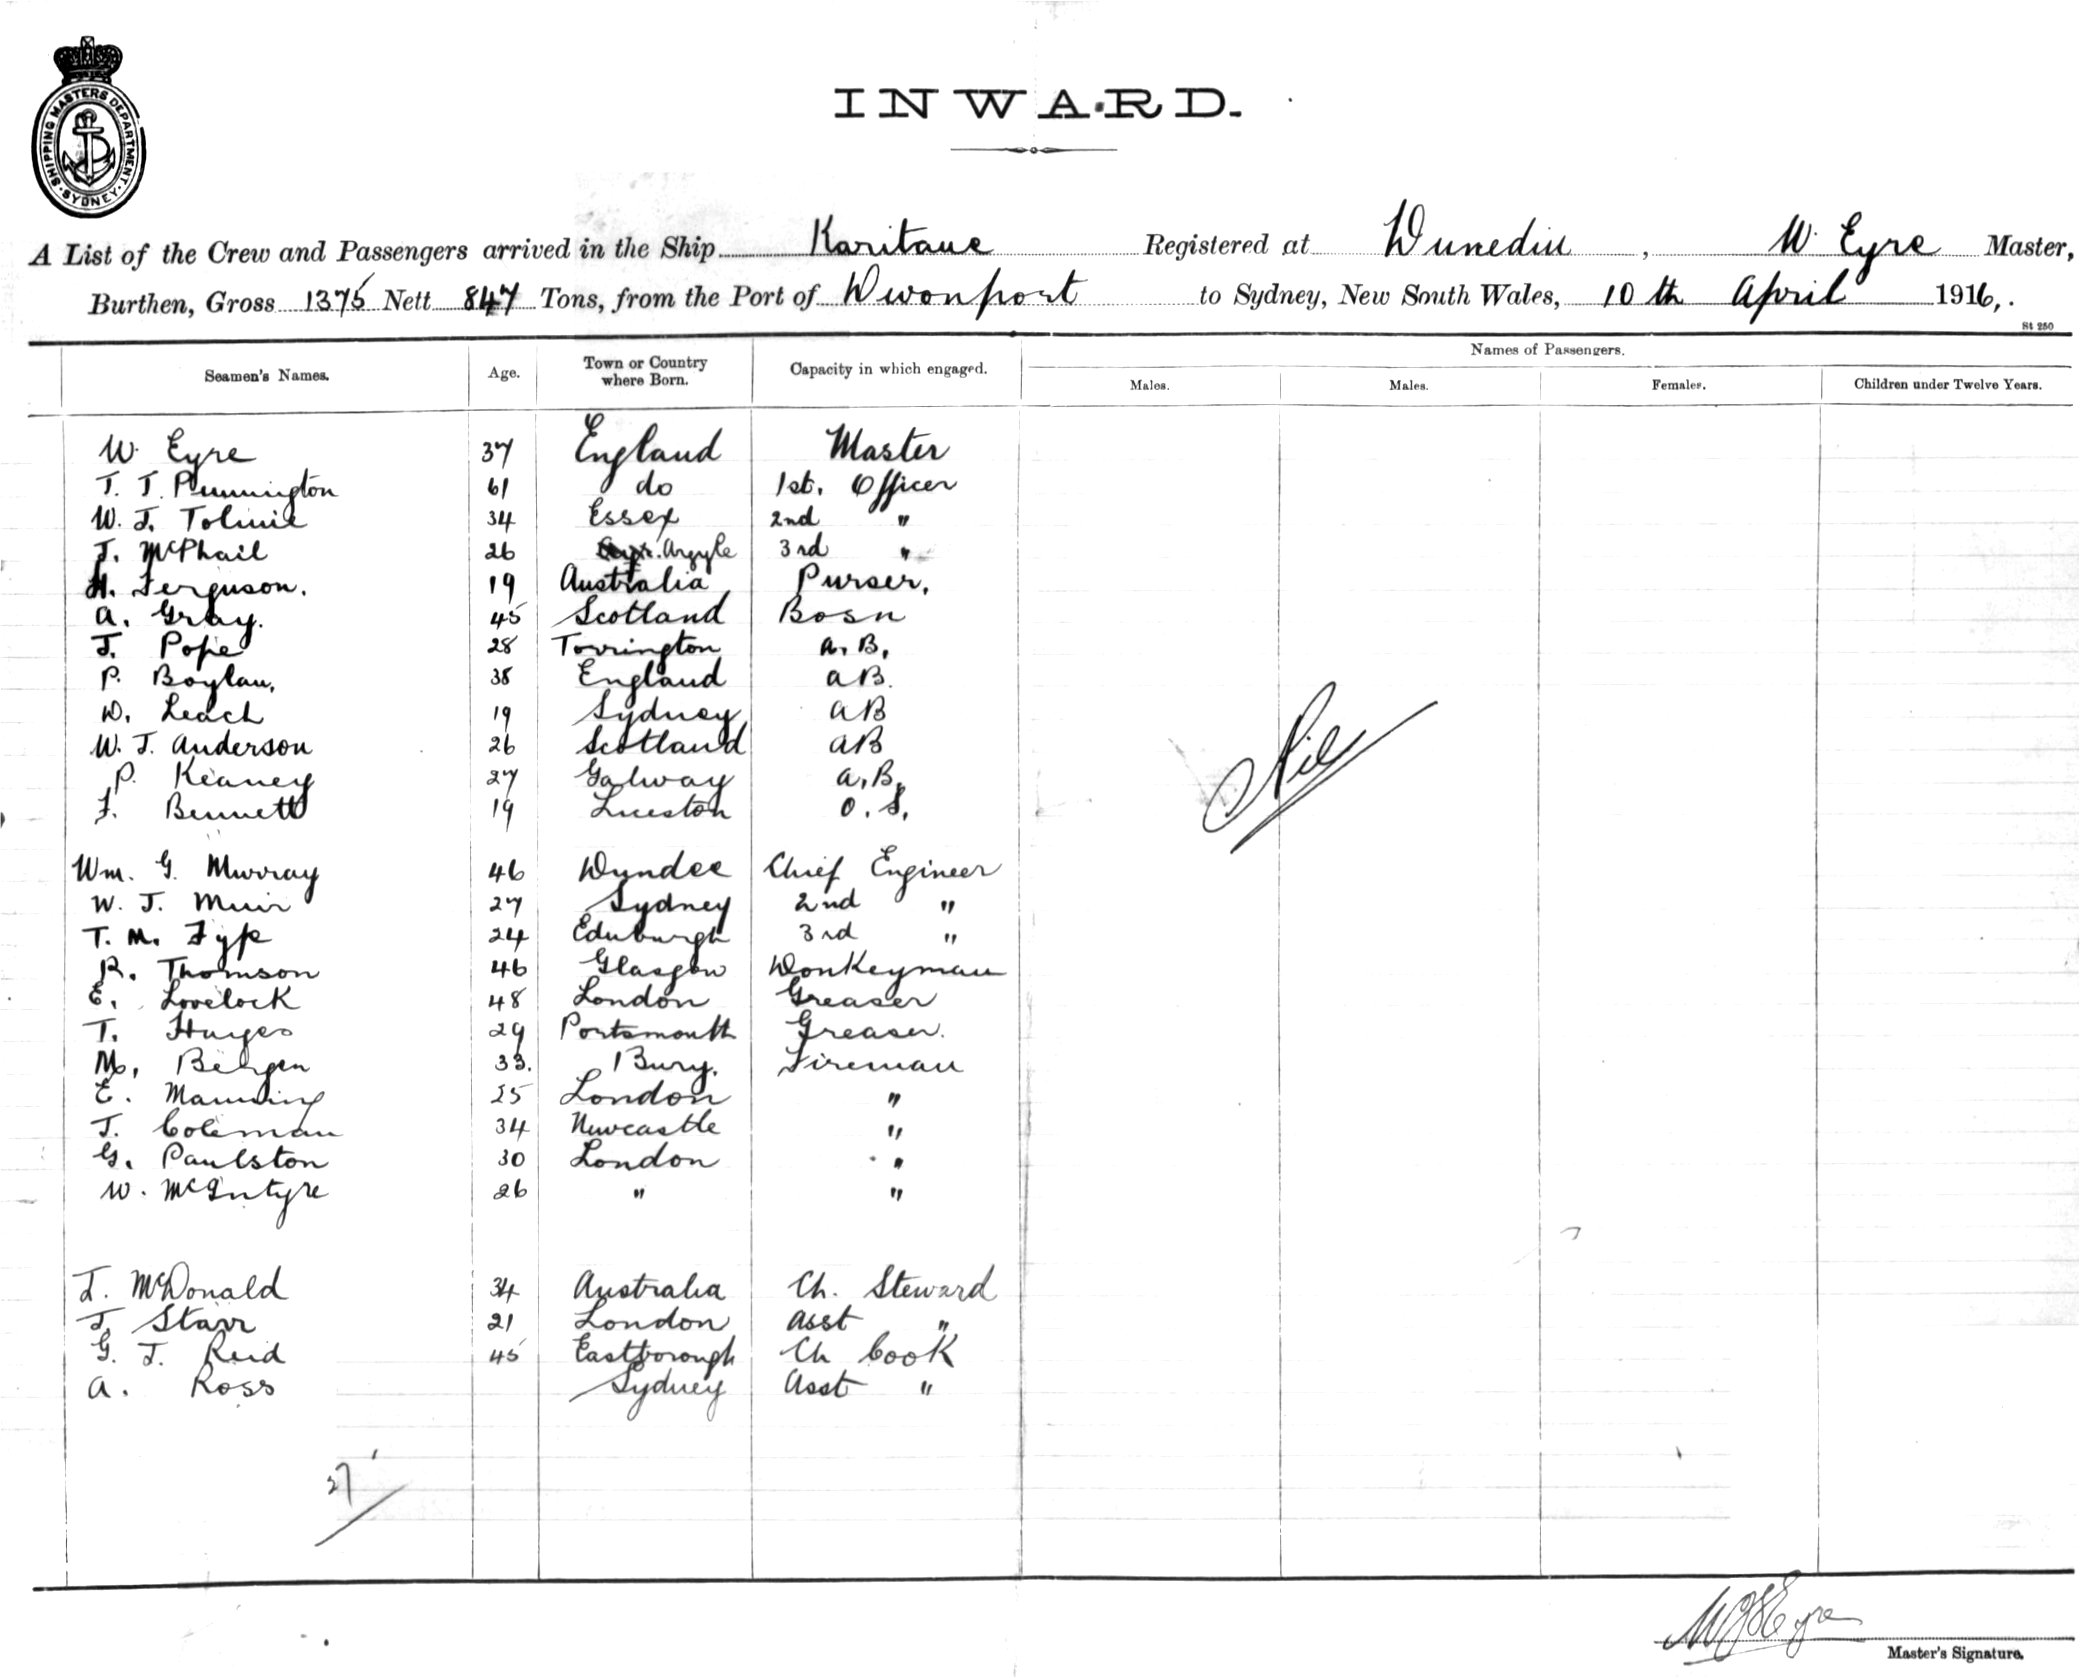 SHIPPING MASTERS DEPARTMENT
SYDNEY
INWARD.
A List of the Crew and Passengers arrived in the Ship Karitane Registered at Dunedin, W. Eyre Master,
Burthen, Gross 1375 Nett 847 Tons, from the Port of Devonport to Sydney, New South Wales, 10th April 1916,.
St 250
Seamen's Names. Age. Town or Country where Born. Capacity in which engaged. Names of Passengers.
Males. Males. Females. Children under Twelve Years.
W. Eyre 37 England Master
T. J. Pennington 61 do 1st. Officer
W. J. Tolmie 34 Essex 2nd "
J. McPhail 26 Argyle 3rd "
H. Ferguson. 19 Australia Purser,
A. Gray. 45 Scotland Bosn
J. Pope 28 Torrington A.B.
P. Boylan, 38 England AB.
D. Leach 19 Sydney AB
W. J. Anderson 26 Scotland AB
P. Keaney 27 Galway A.B.
F. Bennett 19 L'ceston O.S.
Nil
Wm. G. Murray 46 Dundee Chief Engineer
W. J. Muir 27 Sydney 2nd "
T. M. Fyfe 24 Edinburgh 3rd "
R. Thomson 46 Glasgow Donkeyman
E. Lovelock 48 London Greaser
T. Hayes 29 Portsmouth Greaser.
M. Bergen 33. Bury. Fireman
E. Manning 25 London "
J. Coleman 34 Newcastle "
G. Paulston 30 London "
W. McIntyre 26 " "
L. McDonald 34 Australia Ch. Steward
J. Starr 21 London Asst "
G. J. Reid 45 Eastborough Ch Cook
A. Ross Sydney Asst "
27
Eyre
Master's Signature.